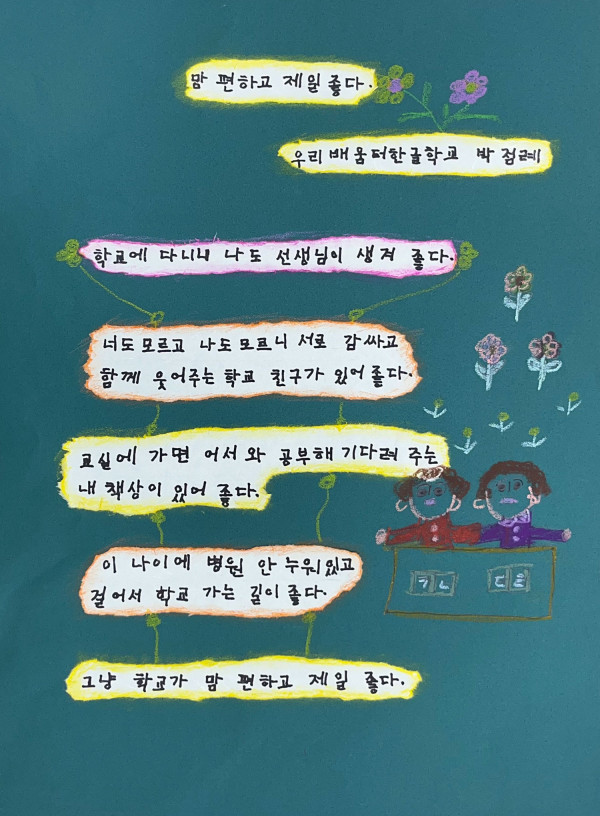 맘 편하고 제일 좋다.
우리배움터한글학교 박점례
학교에 다니니 나도 선생님이 생겨 좋다.
너도모르고 나도모르니 서로 감싸고
함께 웃어주는 학교 친구가 있어좋다.
교실에 가면 어서 와 공부해 기다려 주는
내책상이 있어 좋다.
이 나이에 병원 안누워있고
걸어서 학교 가는 길이 좋다.
그냥 학교가 맘 편하고 제일 좋다.
ㄱㄴ
ㄷㄹ